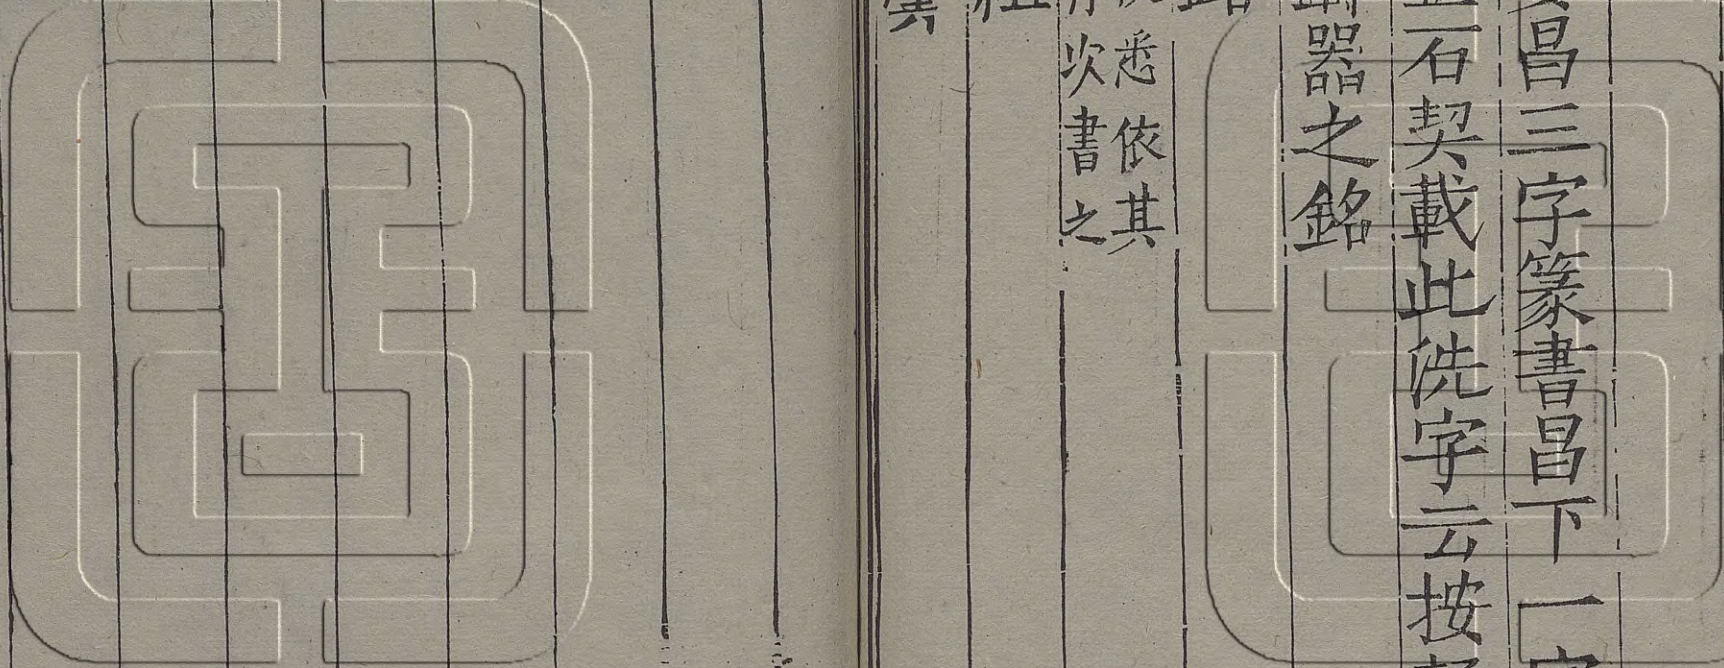 昌三字篆書昌下一
石契載此洗字云按
器之銘
悉依其
次書之